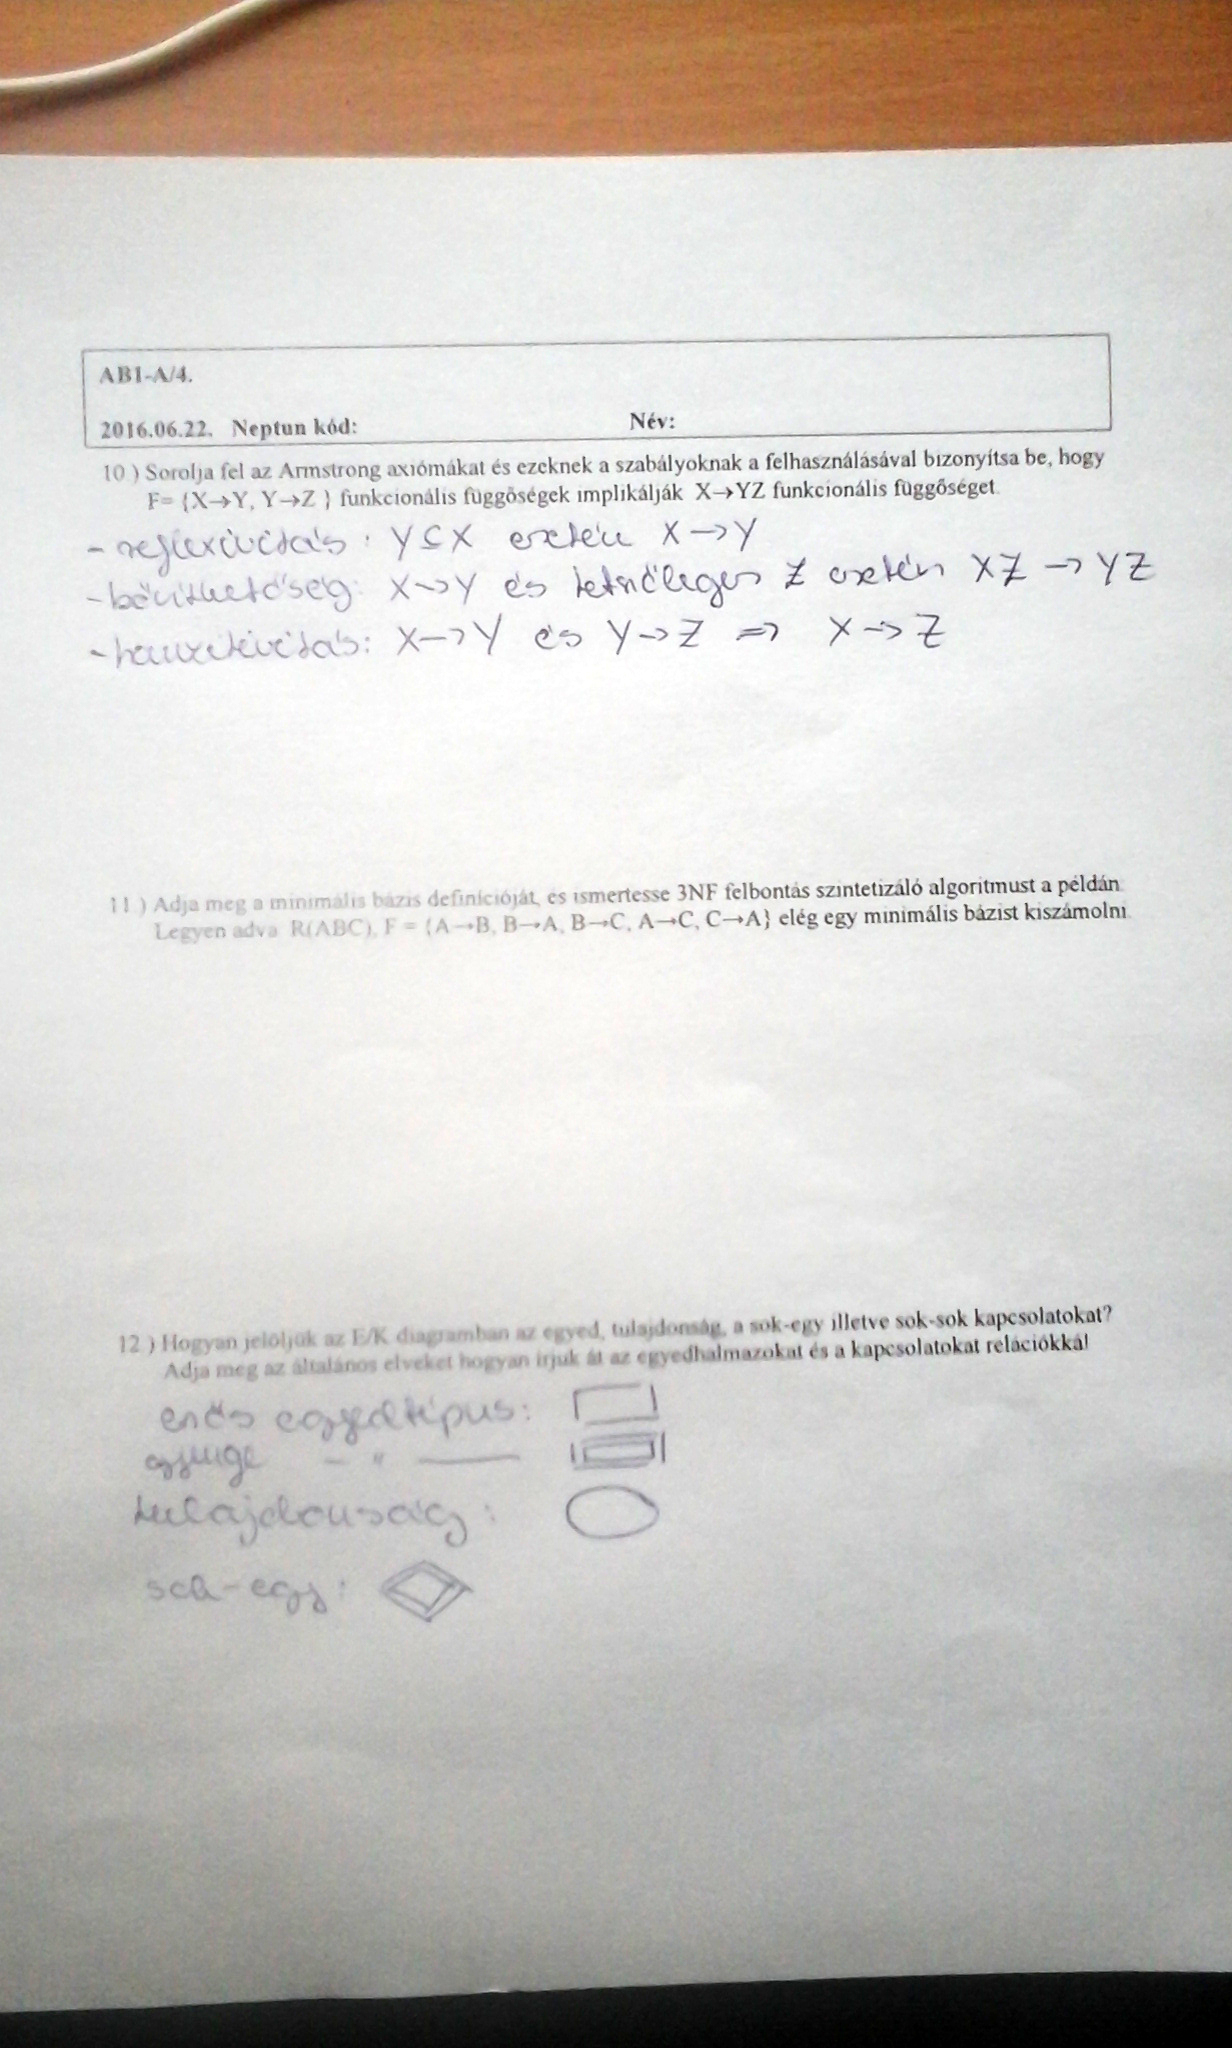 AB1-A/4.
2016.06.22. Neptun kód: Név:
10.) Sorolja fel az Armstrong axiómákat és ezeknek a szabályoknak a felhasználásával bizonyítsa be, hogy
F= {X→Y, Y→Z } funkcionális függőségek implikálják X→YZ funkcionális függőséget.
- reflexivitás: Y⊆X esetén X→Y
- bővíthetőség: X→Y és tetszőleges Z esetén XZ → YZ
- tranzitivitás: X→Y és Y→Z ⇒ X→Z
11.) Adja meg a minimális bázis definícióját, és ismertesse 3NF felbontás szintetizáló algoritmust a példán.
Legyen adva R(ABC), F = {A→B, B→A, B→C, A→C, C→A} elég egy minimális bázist kiszámolni.
12.) Hogyan jelöljük az E/K diagramban az egyed, tulajdonság, a sok-egy illetve sok-sok kapcsolatokat?
Adja meg az általános elveket hogyan írjuk át az egyedhalmazokat és a kapcsolatokat relációkká!
erős egyedtípus:
gyenge — " —
tulajdonság:
sok-egy: